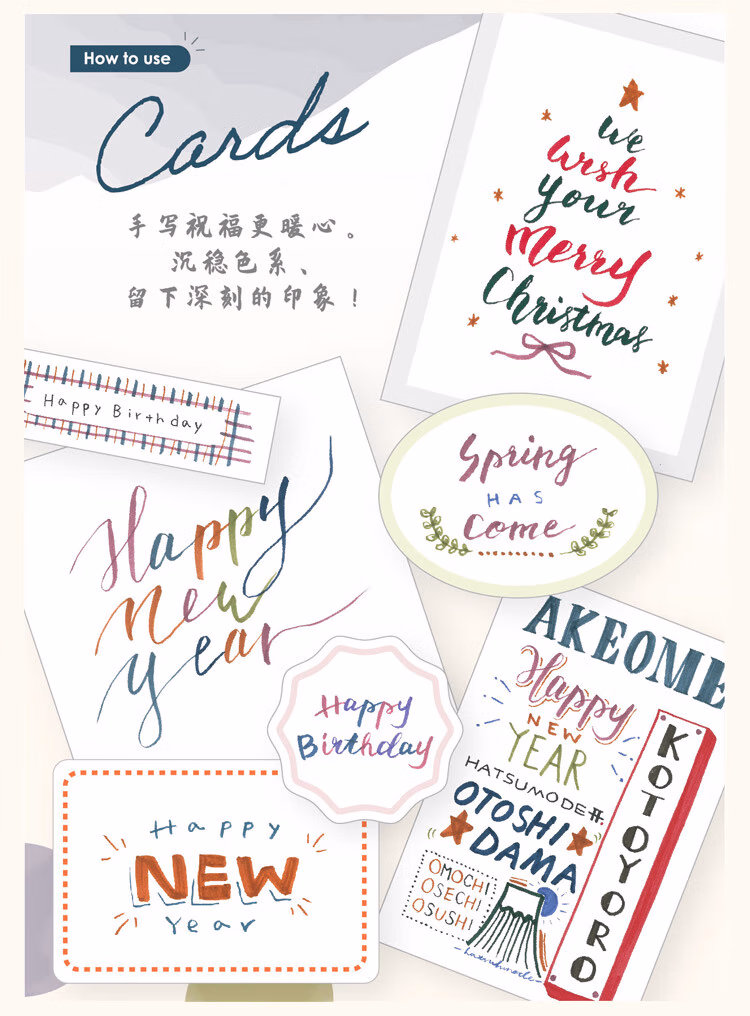 How to use
Cards
手写祝福更暖心。
沉稳色系、
留下深刻的印象！
we
wish
your
Merry
Christmas
Happy Birthday
Spring
HAS
Come
Happy
new
year
AKEOME
Happy
NEW
YEAR
HATSUMODE
OTOSHI
DAMA
OMOCHI
OSECHI
OSUSHI
KOTOYORO
Happy
Birthday
Happy
NEW
Year